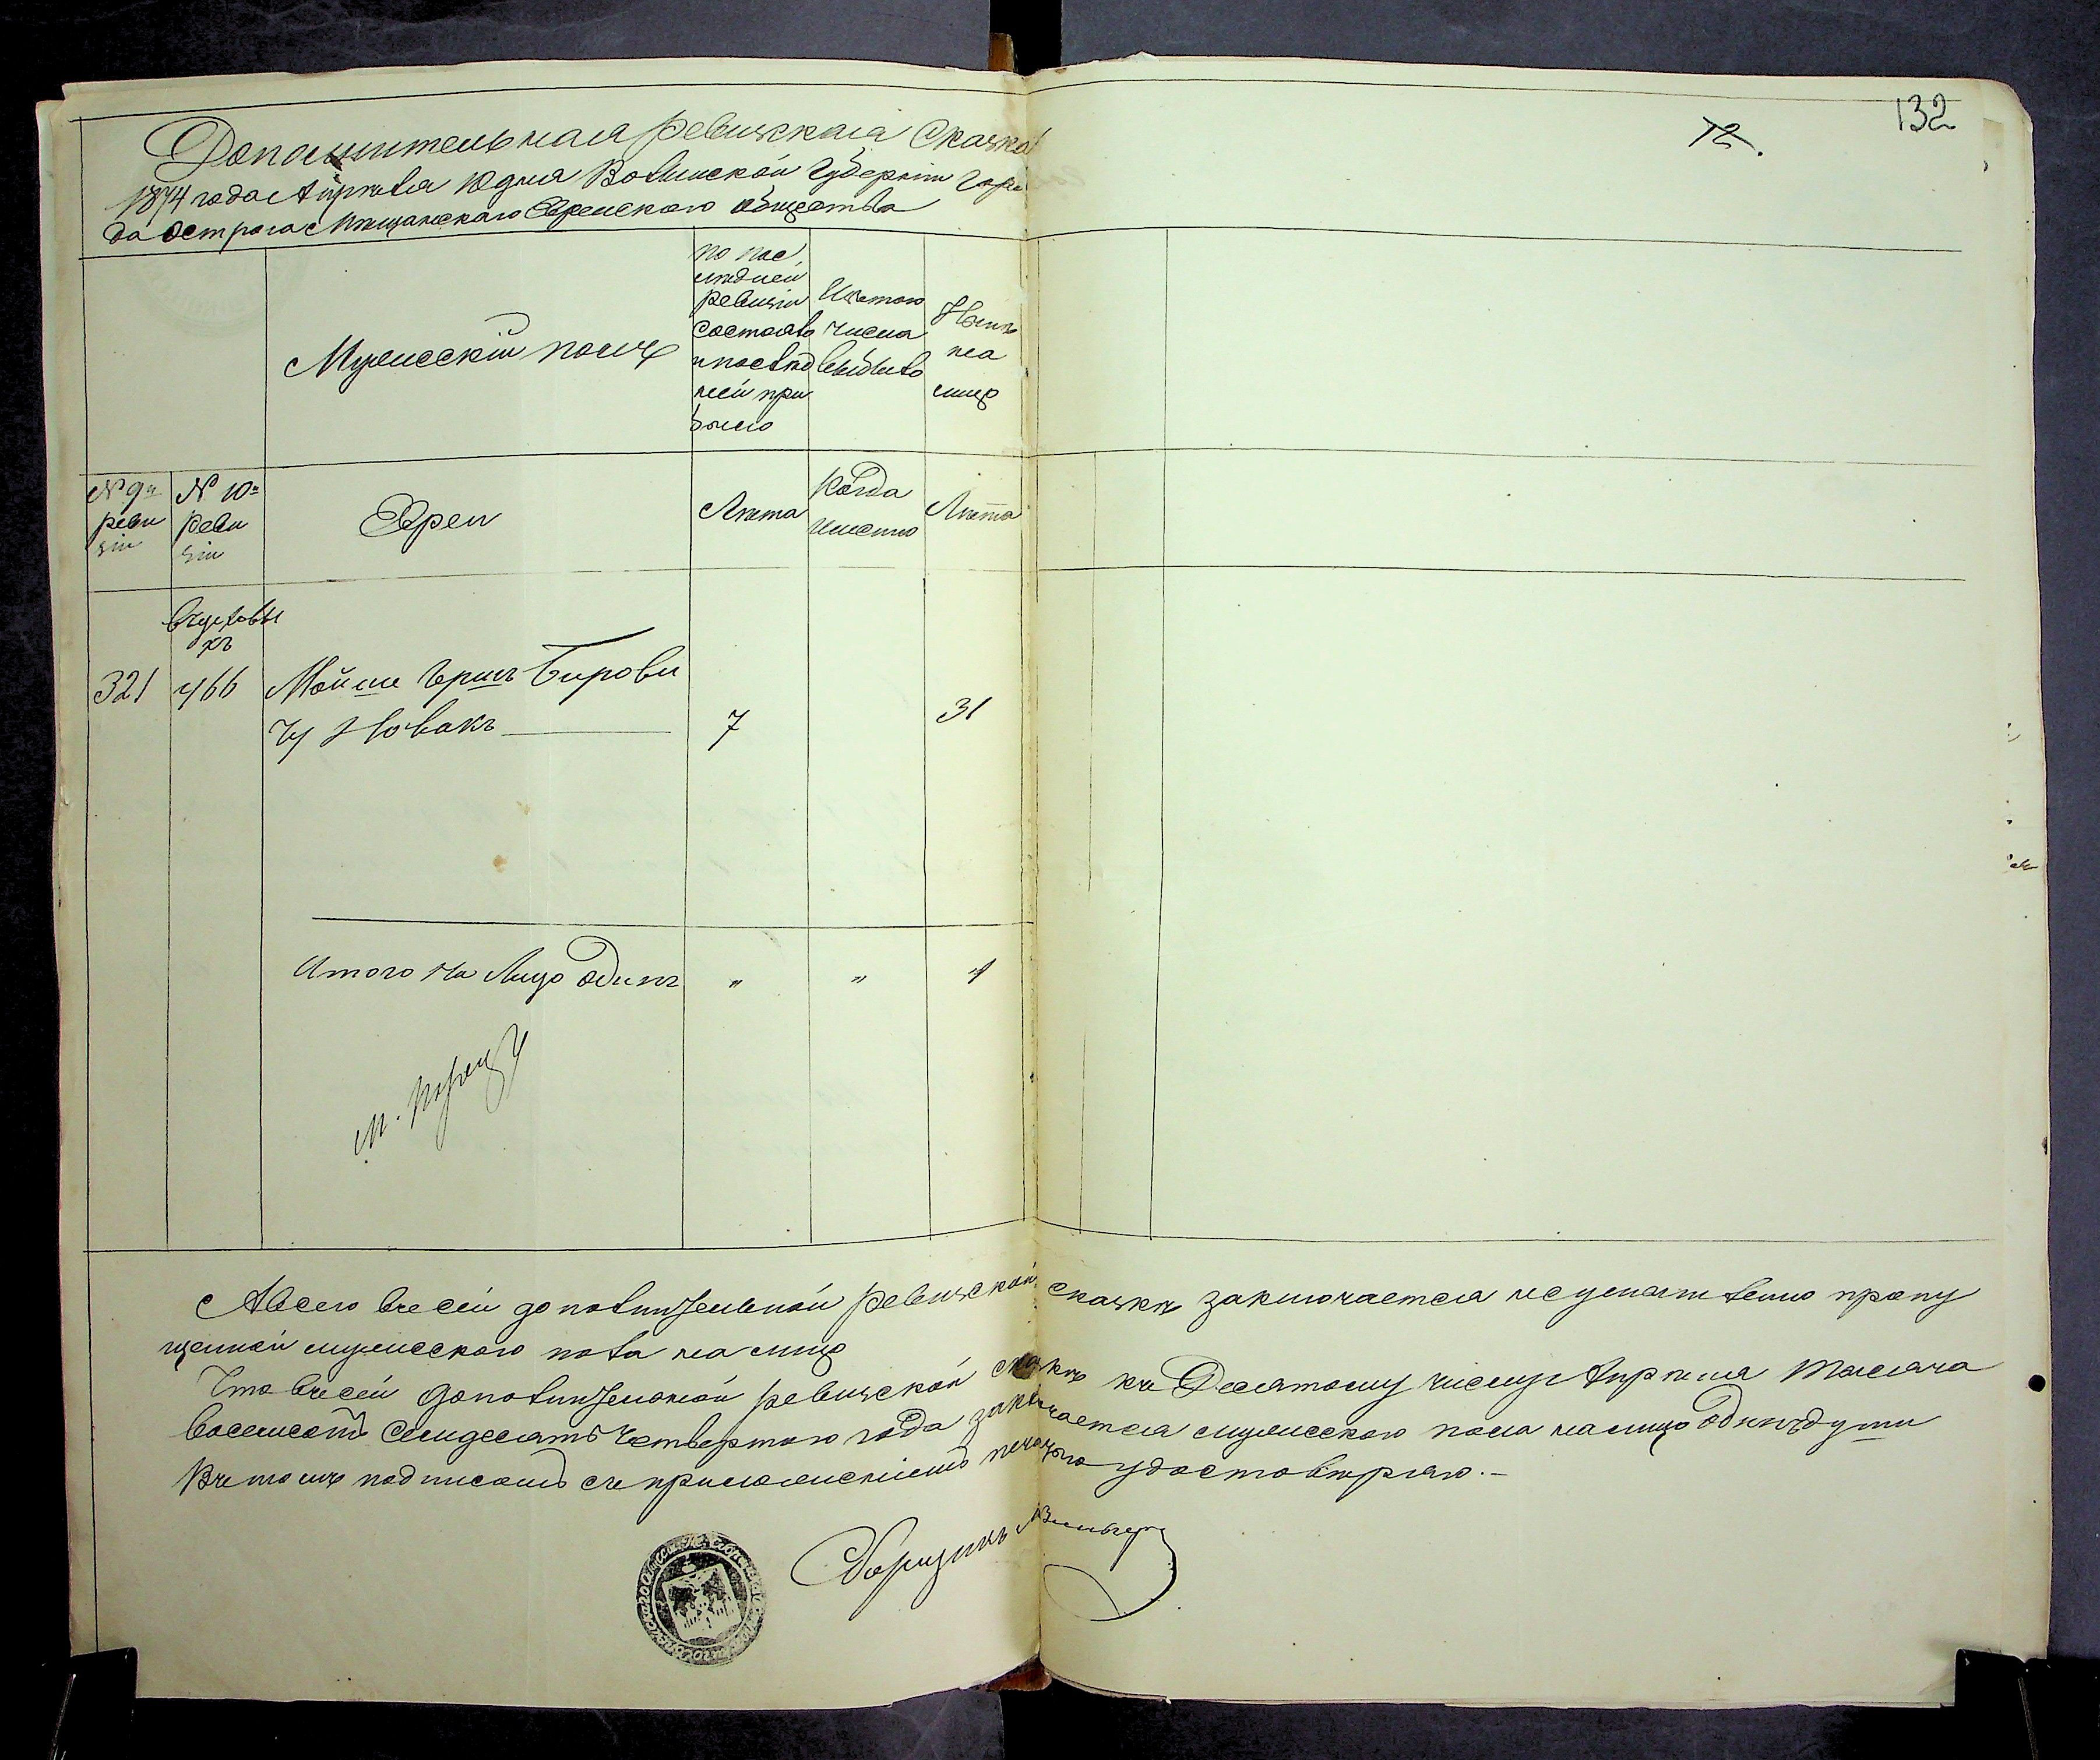 132
12.
Дополнительная ревизская Сказка
1874 года Апреля 10 дня Волынской Губернии горо
да Острога Мѣщанскаго Еврейского общества
Мужесскій полъ
по пос
лѣдней
ревизіи
состояло
и послѣд
ней при
было
Изтого
числа
выбыло
Нынѣ
на
лицо
№ 9й
реви
зіи
№ 10й
реви
зіи
Евреи
Лѣта
Когда
именно
Лѣта
321
466
Мойше Герш Берови
чъ Новакъ
7
31
Итого на Лицо один
"
"
1
Авсего всей дополнительной ревизской сказкѣ заключается неумышленно пропу
щенной мужеского пола на лицо
Что всей дополнительной ревизской сказкѣ къ Десятому числу Апрѣля Тысяча
восемсотъ Семдесятъ Четвертого года заключается мужеского пола налицо Одинъ души
Вчемъ подписомъ съ приложеніемъ печати удостовѣряю.-
Сборщикъ